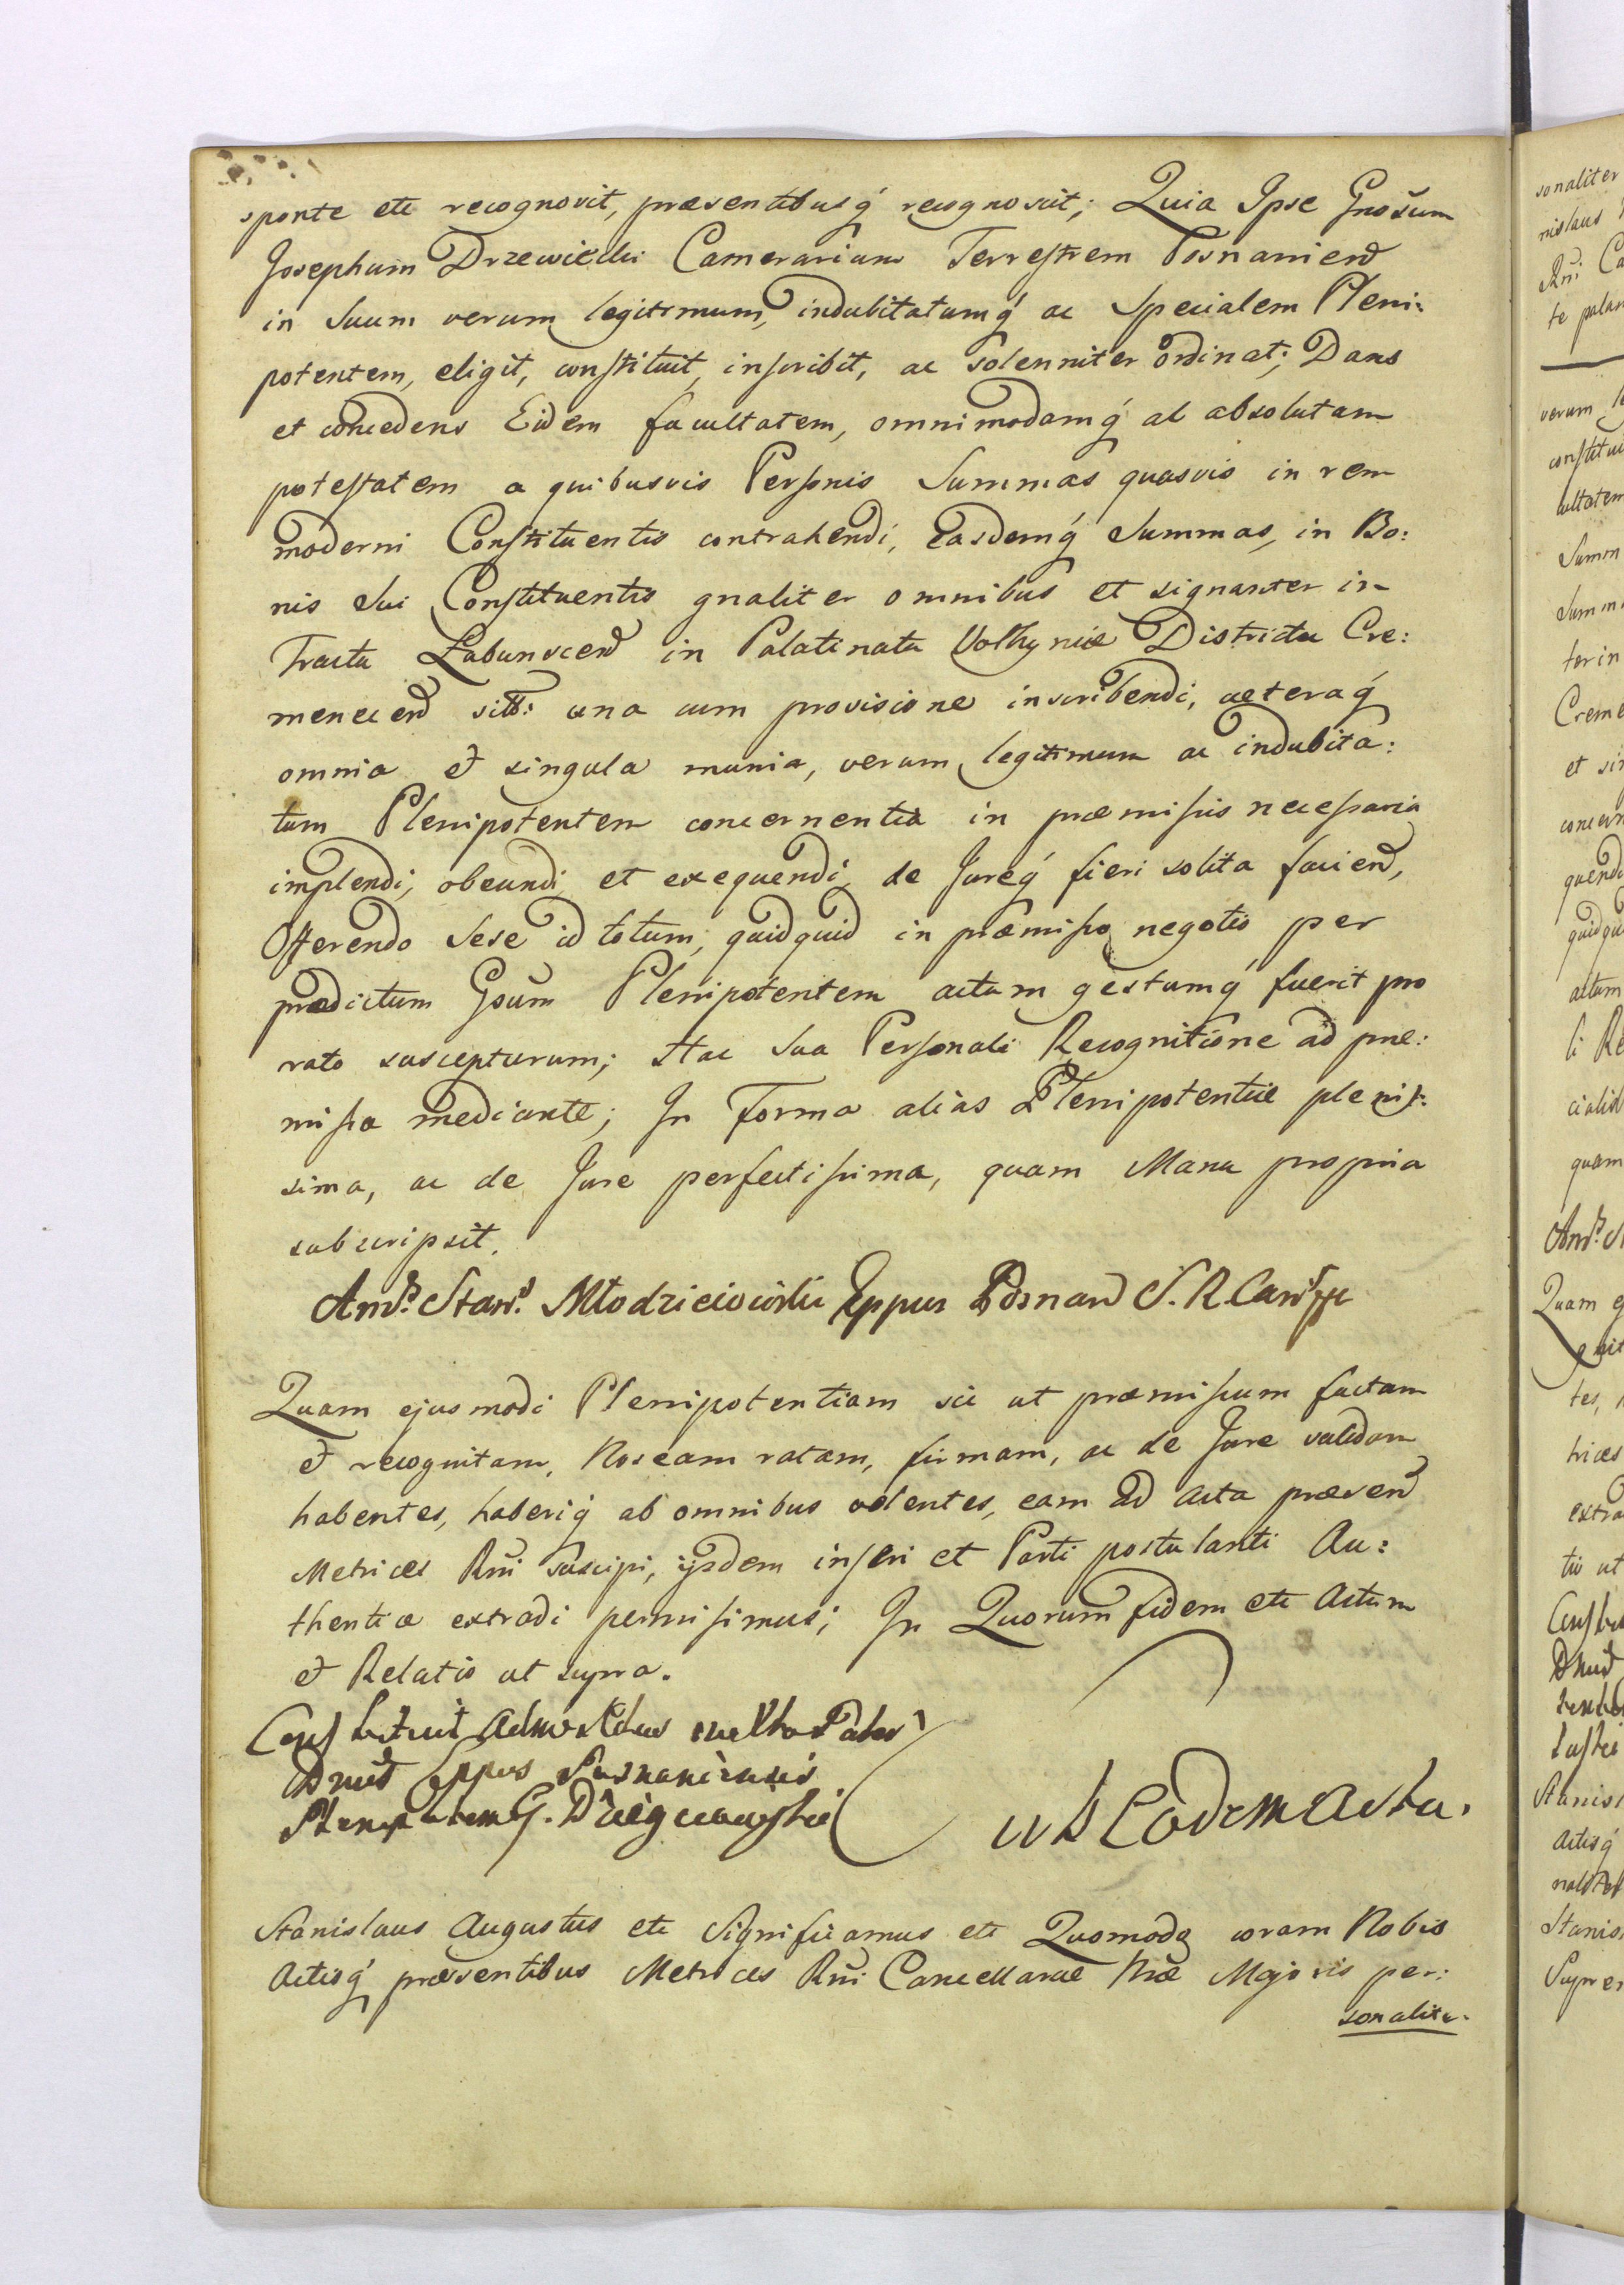 sponte etc recognovit, præsentibusq́ recognoscit; Quia Ipse Gnosum
Josephum Drzewiecki Camerarium Terrestrem Posnanien
in Suum verum legitimum, indubitatumq́ ac Specialem Pleni:
potentem, eligit, constituit, inscribit, ac solenniter ordinat; Dans
et concedens Eidem facultatem, omnimodamq́ ac absolutam
potestatem a quibusvis Personis Summas quasvis in rem
moderni Constituentis contrahendi, Easdemq́ Summas, in Bo:
nis Sui Constituentis gnaliter omnibus et signanter in
Tractu Łabunscen in Palatinatu Volhyniæ Districtu Cre:
menecen sitt: una cum provisione inscribendi, cæteraq́
omnia et singula munia, verum legitimum ac indubita:
tum Plenipotentem concernentia in præmissis necessaria
implendi, obeundi et exequendi, de Jureq́ fieri solita facien,
Offerendo Sese id totum, quidquid in præmisso negotio per
prædictum Gsum Plenipotentem actum gestumq́ fuerit pro
rato suscepturum; Hac Sua Personali Recognitione ad præ:
missa mediante; In Forma alias Plenipotentiæ plenis:
sima, ac de Jure perfectissima, quam Manu propria
subscripsit.
Andr. Stan. Młodzieiowski Eppus Posnan S. R. Canrz
Quam ejusmodi Plenipotentiam sic ut præmissum factam
et recognitam, Nos eam ratam, firmam, ac de Jure validam
habentes, haberiq́ ab omnibus volentes, eam ad Acta præsen
Metrices Rni suscipi, ijsdem inseri et Parti postulanti Au:
thentice extradi permisimus; In Quorum fidem etc Actum
et Relatio ut supra.
Constituit
Eppus Posnaniensis
sub Eodem Actu.
Stanislaus Augustus etc Significamus etc Quomodo coram Nobis
Actisq́ præsentibus Metrices Rni Cancellariæ Nræ Majoris per:
sonaliter